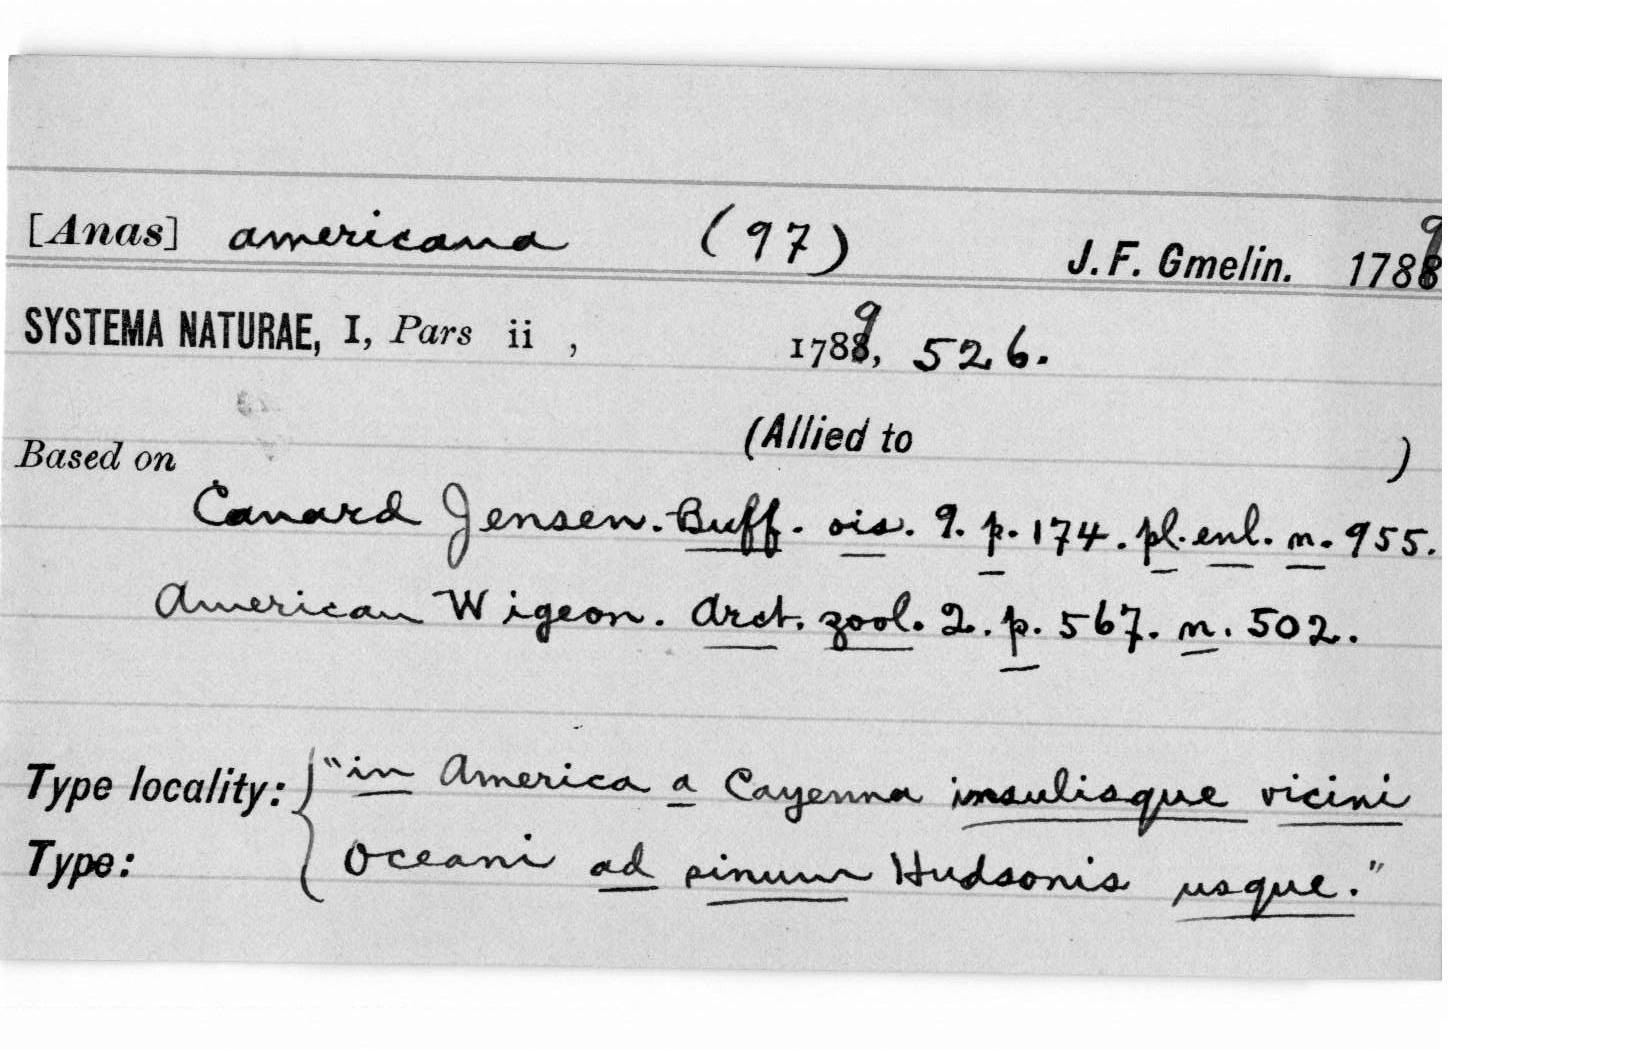 [Anas] americana (97) J. F. Gmelin. 1789
SYSTEMA NATURAE, I, Pars ii , 1789, 526.
(Allied to )
Based on
Canard Jensen. Buff. ois. 9. p. 174. pl. enl. n. 955.
American Wigeon. Arct. zool. 2. p. 567. n. 502.
Type locality: "in America a Cayenna insulisque vicini
Type: Oceani ad sinum Hudsonis usque."